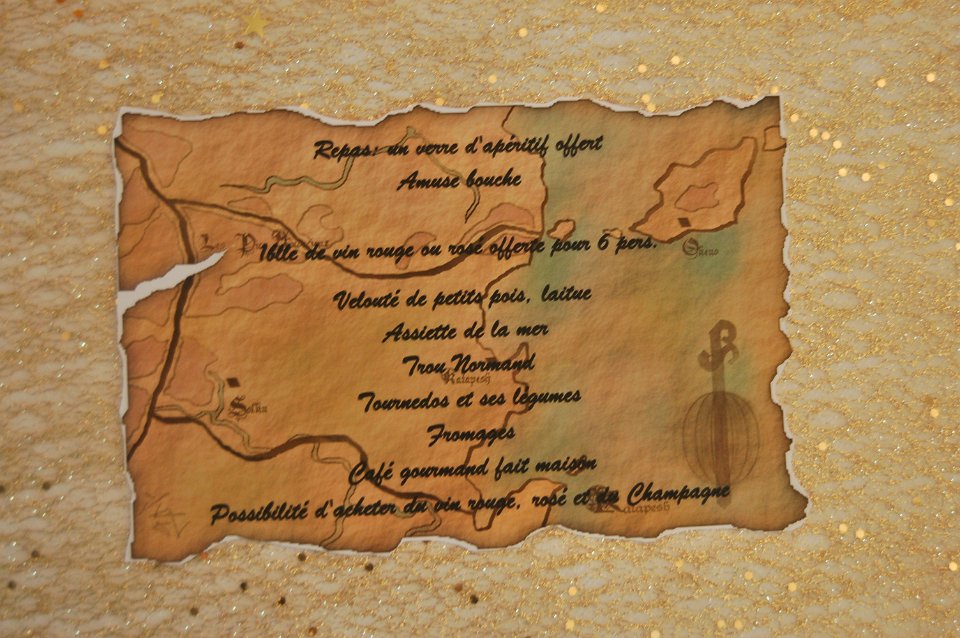 Repas: un verre d'apéritif offert
Amuse bouche
1blle de vin rouge ou rosé offerte pour 6 pers.
Velouté de petits pois, laitue
Assiette de la mer
Trou Normand
Katapesh
Tournedos et ses légumes
Solku
Fromages
Café gourmand fait maison
Possibilité d'acheter du vin rouge, rosé et du Champagne
Katapesh